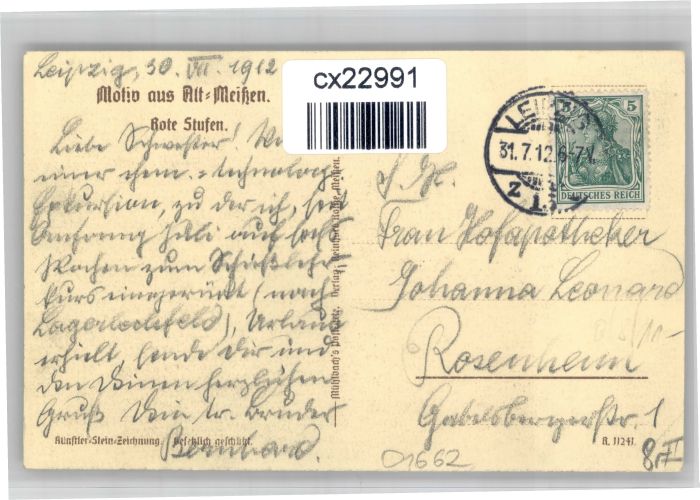 Leipzig, 30. VII. 1912
cx22991
Motiv aus Alt-Meißen.
Rote Stufen.
Liebe Schwester! Von
einer chem.-technolog.
Exkursion, zu der ich, seit
Anfang Juli auf sechs
Wochen zum Schießlehr
kurs eingerückt (nach
Lagerlechfeld), Urlaub
erhielt, sende Dir und
den Deinen herzlichen
Gruß Dein tr. Bruder
Bernhard.
Künstler-Stein-Zeichnung. Gesetzlich geschützt.
Mühlbach's Verlag, Meißen.
LEIPZIG
31.7.12.6-7V.
5
DEUTSCHES REICH
Frau Hofapotheker
Johanna Leonhard
Rosenheim
Gabelsbergerstr. 1
A. 11241.
01662